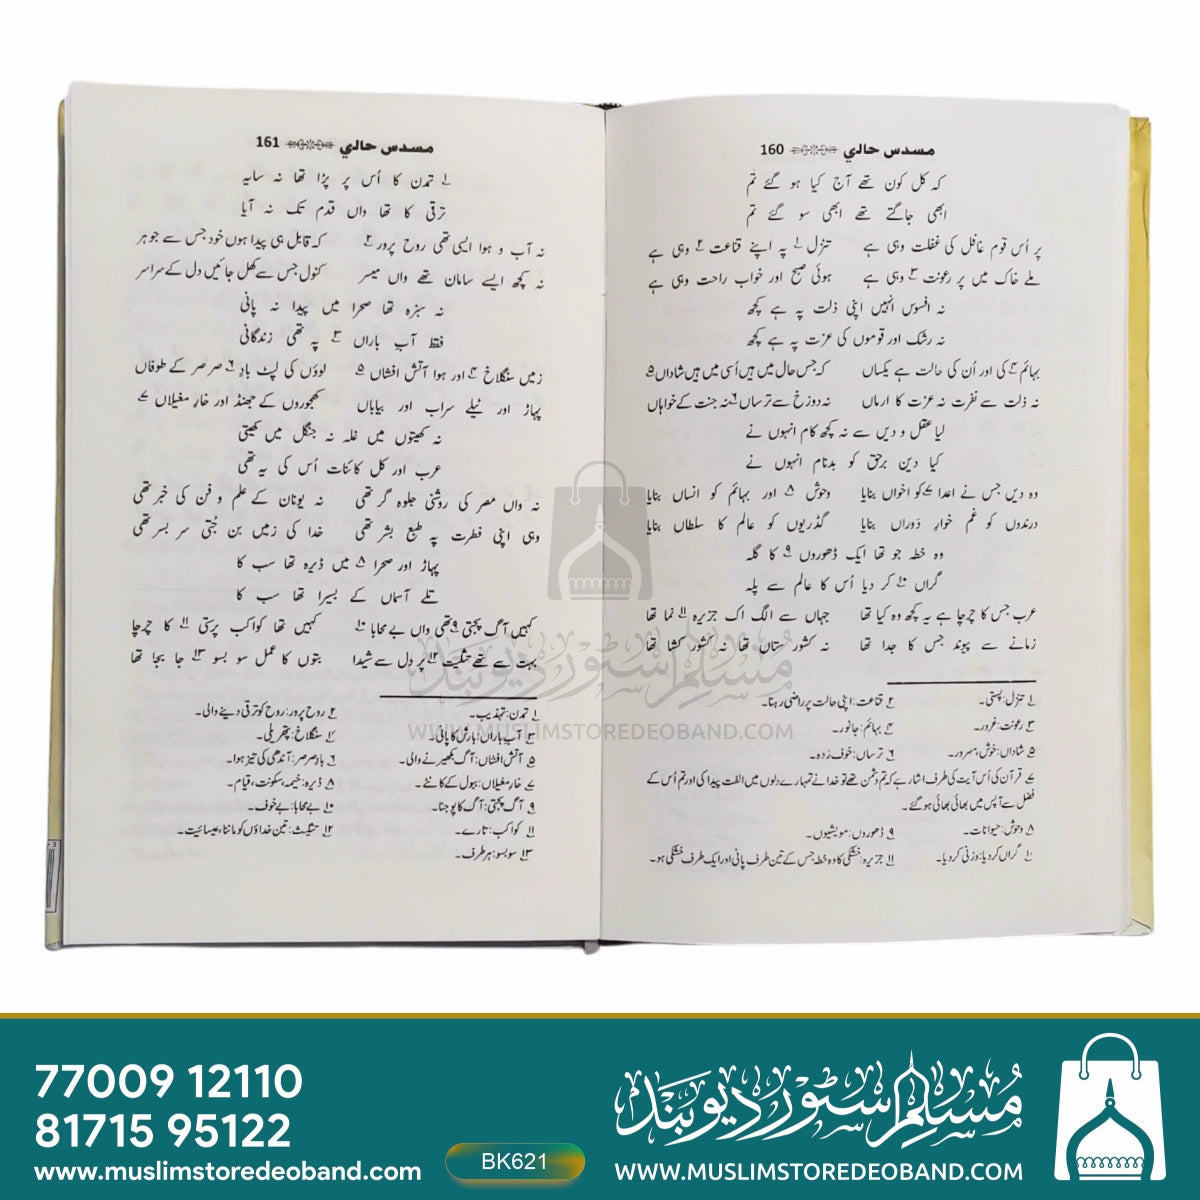 مسدس حالی 160
کہ کل کون تھے آج کیا ہو گئے تم
ابھی جاگتے تھے ابھی سو گئے تم
پر اُس قوم غافل کی غفلت وہی ہے تنزل ۱ پہ اپنے قناعت ۲ وہی ہے
ملے خاک میں پر رعونت ۳ وہی ہے ہوئی صبح اور خواب راحت وہی ہے
نہ افسوس انہیں اپنی ذلت پہ ہے کچھ
نہ رشک اور قوموں کی عزت پہ ہے کچھ
بہائم ۴ کی اور اُن کی حالت ہے یکساں کہ جس حال میں ہیں اُسی میں ہیں شاداں ۵
نہ ذلت سے نفرت نہ عزت کا ارماں نہ دوزخ سے ترساں ۶ نہ جنت کے خواہاں
لیا عقل و دیں سے نہ کچھ کام انہوں نے
کیا دین برحق کو بدنام انہوں نے
وہ دیں جس نے اعدا ۷ کو اخواں بنایا وحوش ۸ اور بہائم کو انساں بنایا
درندوں کو غم خوارِ دَوراں بنایا گڈریوں کو عالم کا سلطاں بنایا
وہ خطہ جو تھا ایک ڈھوروں ۹ کا گلہ
گراں ۱۰ کر دیا اُس کا عالم سے پلہ
عرب جس کا چرچا ہے یہ کچھ وہ کیا تھا جہاں سے الگ اک جزیرہ ۱۱ نما تھا
زمانے سے پیوند جس کا جدا تھا نہ کشور ستاں تھا نہ کشور کشا تھا
۱ تنزل: پستی۔ ۲ قناعت: اپنی حالت پر راضی رہنا۔
۳ رعونت: غرور۔ ۴ بہائم: جانور۔
۵ شاداں: خوش، مسرور۔ ۶ ترساں: خوف زدہ۔
۷ قرآن کی اُس آیت کی طرف اشارہ ہے کہ تم دشمن تھے تو خدا نے تمہارے دلوں میں الفت پیدا کی اور تم اُس کے
فضل سے آپس میں بھائی بھائی ہو گئے۔
۸ وحوش: حیوانات۔ ۹ ڈھوروں: مویشیوں۔
۱۰ گراں کر دیا: وزنی کر دیا۔ ۱۱ جزیرہ: خشکی کا وہ خطہ جس کے تین طرف پانی اور ایک طرف خشکی ہو۔
مسدس حالی 161
۱ تمدن کا اُس پر پڑا تھا نہ سایہ
ترقی کا تھا واں قدم تک نہ آیا
نہ آب و ہوا ایسی تھی روح پرور ۲ کہ قابل ہی پیدا ہوں خود جس سے جوہر
نہ کچھ ایسے سامان تھے واں میسر کنول جس سے کھل جائیں دل کے سراسر
نہ سبزہ تھا صحرا میں پیدا نہ پانی
فقط آبِ باراں ۳ پہ تھی زندگانی
زمیں سنگلاخ ۴ اور ہوا آتش افشاں ۵ لوؤں کی لپٹ بادِ ۶ صرصر کے طوفاں
پہاڑ اور ٹیلے سراب اور بیاباں کھجوروں کے جھنڈ اور خارِ مغیلاں ۷
نہ کھیتوں میں غلہ نہ جنگل میں کھیتی
عرب اور کل کائنات اُس کی یہ تھی
نہ واں مصر کی روشنی جلوہ گر تھی نہ یونان کے علم و فن کی خبر تھی
وہی اپنی فطرت پہ طبع بشر تھی خدا کی زمیں بن جُتی سر بسر تھی
پہاڑ اور صحرا ۸ میں ڈیرہ تھا سب کا
تلے آسماں کے بسیرا تھا سب کا
کہیں آگ پجتی ۹ تھی واں بے محابا ۱۰ کہیں تھا کواکب پرستی ۱۱ کا چرچا
بہت سے تھے تثلیث ۱۲ پر دل سے شیدا بتوں کا عمل سو بسو ۱۳ جا بجا تھا
۱ تمدن: تہذیب۔ ۲ روح پرور: روح کو ترقی دینے والی۔
۳ آب باراں: بارش کا پانی۔ ۴ سنگلاخ: پتھریلی۔
۵ آتش افشاں: آگ بکھیرنے والی۔ ۶ باد صرصر: آندھی کی تیز ہوا۔
۷ خار مغیلاں: ببول کے کانٹے۔ ۸ ڈیرہ: خیمہ، سکونت، قیام۔
۹ آگ پجتی: آگ کا پوجنا۔ ۱۰ بے محابا: بے خوف۔
۱۱ کواکب: تارے۔ ۱۲ تثلیث: تین خداؤں کو ماننا، عیسائیت۔
۱۳ سو بسو: ہر طرف۔
مسلم سٹور دیوبند
WWW.MUSLIMSTOREDEOBAND.COM
77009 12110
81715 95122
www.muslimstoredeoband.com
BK621
مسلم سٹور دیوبند
WWW.MUSLIMSTOREDEOBAND.COM